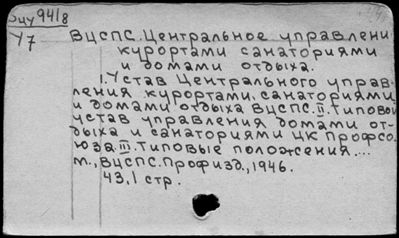 Эцу 941/8
У7
ВЦСПС. Центральное управлени
курортами санаториями
и домами отдыха.
1. Устав Центрального управ-
ления курортами, санаториями
и домами отдыха ВЦСПС. II. Типовой
устав управления домами от-
дыха и санаториями ЦК Профсо-
юза. III. Типовые положения....
М., ВЦСПС. Профизд., 1946.
43,1 стр.